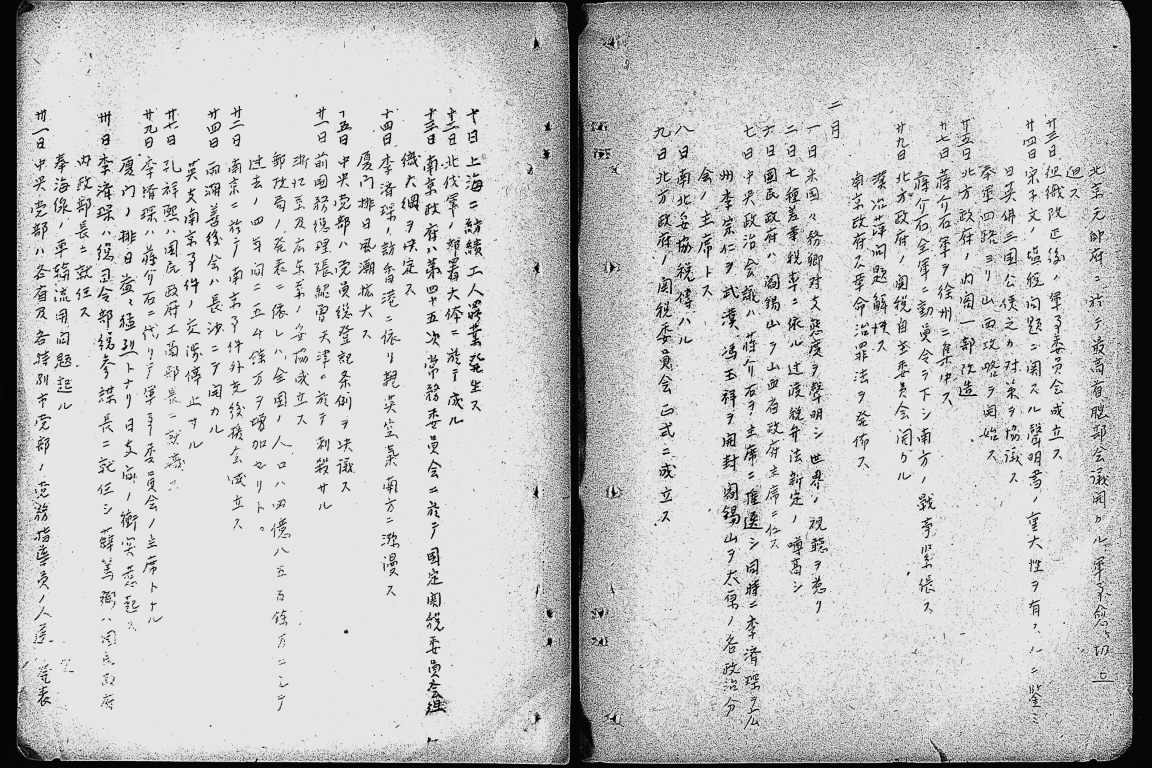 北京元帥府ニ於テ最高首脳部会議開カル、軍事愈々切
迫ス
廿三日 組織改正後ノ軍事委員会成立ス
廿四日 宋子文ノ塩税問題ニ関スル聲明書ノ重大性ヲ有スルニ鑒ミ
日英佛三国公使之カ対策ヲ協議ス
奉軍四路ヨリ山西攻略ヲ開始ス
廿五日 北方政府ノ内閣一部改造
廿七日 蒋介石軍ヲ徐州ニ集中ス
蒋介石全軍ニ動員令ヲ下シ南方ノ戦事緊張ス
廿九日 北方政府ノ関税自主委員会開カル
漢冶萍問題解決ス
南京政府ハ革命治罪法ヲ発布ス
二月
一日 米国々務卿対支態度ヲ聲明シ世界ノ視聴ヲ惹ク
二日 七種差等税率ニ依ル過渡税弁法新定ノ噂高シ
六日 国民政府ハ閻錫山ヲ山西省政府主席ニ任ス
七日 中央政治会議ハ蒋介石ヲ主席ニ推選シ同時ニ李済琛ヲ広
州李宗仁ヲ武漢、馮玉祥ヲ開封閻錫山ヲ太原ノ各政治分
会ノ主席トス
八日 南北妥協税傳ハル
九日 北方政府ノ関税委員会正式ニ成立ス
十日 上海ニ紡績工人罷業発生ス
十二日 北伐軍ノ部署大体ニ於テ成ル
十三日 南京政府ハ第四十五次常務委員会ニ於テ国定関税委員会組
織大綱ヲ決定ス
十四日 李済琛ノ訪香港ニ依リ親英空気南方ニ瀰漫ス
厦門排日風潮拡大ス
十五日 中央党部ハ党員総登記条例ヲ決議ス
廿一日 前国務総理張紹曽天津ニ於テ刺殺サル
浙江系及広東系ノ妥協成立ス
郵政局ノ発表ニ依レハ全国ノ人口ハ四億八五百餘万ニシテ
過去ノ四年間ニ五千餘万ヲ増加セリト。
廿二日 南京ニ於テ南京事件外交後援会成立ス
廿四日 両湖善後会ハ長沙ニテ開カル
英支南京事件ノ交渉停止サル
廿七日 孔祥熙ハ国民政府工商部長ニ就職ス
廿九日 李済琛ハ蒋介石ニ代リテ軍事委員会ノ主席トナル
厦門ノ排日益々猛烈トナリ日支間ノ衝突惹起ス
卅日 李済琛ハ総司令部総参謀長ニ就任シ薛篤弼ハ国民政府
内政部長ニ就任ス
奉海線ノ車輌流用問題起ル
卅一日 中央党部ハ各省及各特別市党部ノ党務指導員ノ人選 発表